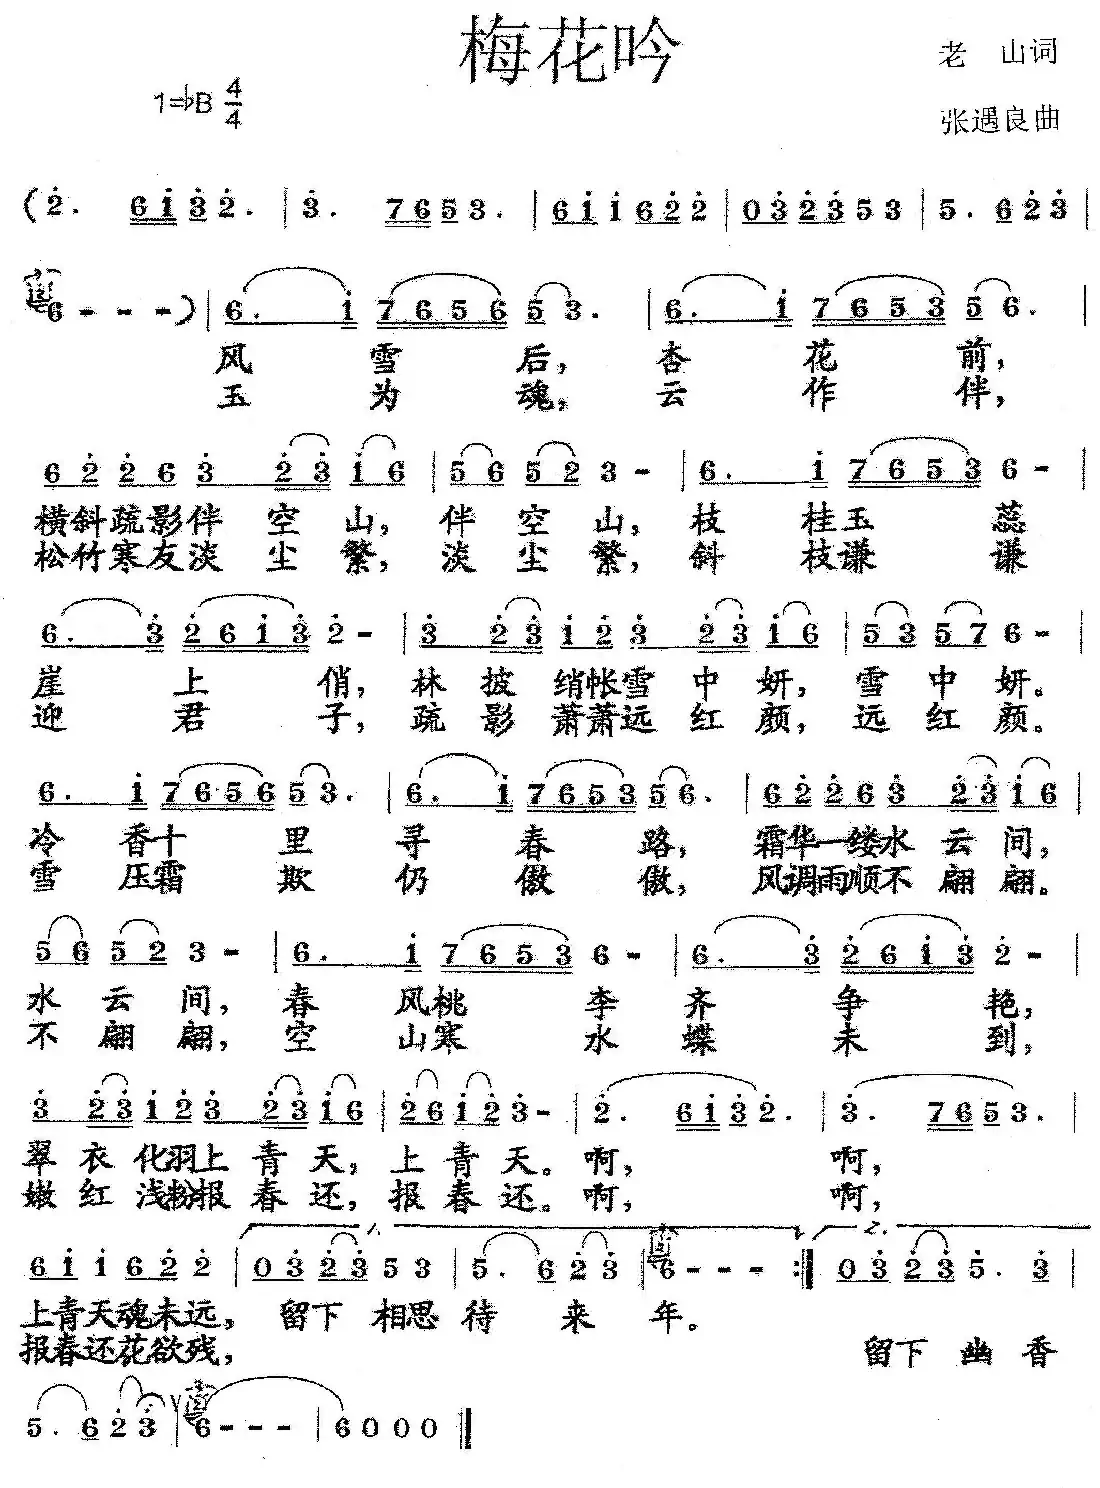 梅花吟
老 山词
1=♭B 4/4
张遇良曲
(2. 6132. | 3. 7653. | 611622 | 0323 53 | 5. 623 |
6---) | 6. 1 7656 53. | 6. 1 7653 56. |
风 雪 后, 杏 花 前,
玉 为 魂, 云 作 伴,
6226 3 23 16 | 56 52 3- | 6. 1 7653 6- |
横斜疏影伴 空 山, 伴 空 山, 枝 桂玉 蕊
松竹寒友淡 尘 繁, 淡 尘 繁, 斜 枝谦 谦
6. 3 2613 2- | 3 23 123 23 16 | 53 57 6- |
崖 上 俏, 林 披 绡帐雪 中 妍, 雪 中 妍。
迎 君 子, 疏 影 萧萧远 红 颜, 远 红 颜。
6. 1 7656 53. | 6. 1 7653 56. | 6226 3 23 16 |
冷 香十 里 寻 春 路, 霜华一缕水 云 间,
雪 压霜 欺 仍 傲 傲, 风调雨顺不 翩 翩。
56 52 3- | 6. 1 7653 6- | 6. 3 2613 2- |
水 云 间, 春 风桃 李 齐 争 艳,
不 翩 翩, 空 山寒 水 蝶 未 到,
3 23 123 23 16 | 26 12 3- | 2. 6132. | 3. 7653. |
翠 衣 化羽上 青 天, 上 青 天。啊, 啊,
嫩 红 浅粉报 春 还, 报 春 还。啊, 啊,
1. 2.
611622 | 0323 53 | 5. 623 | 6--- :| 0323 5. 3 |
上青天魂未远, 留下 相思 待 来 年。
报春还花欲残, 留下 幽 香
5. 623 | 6--- | 6000 ‖